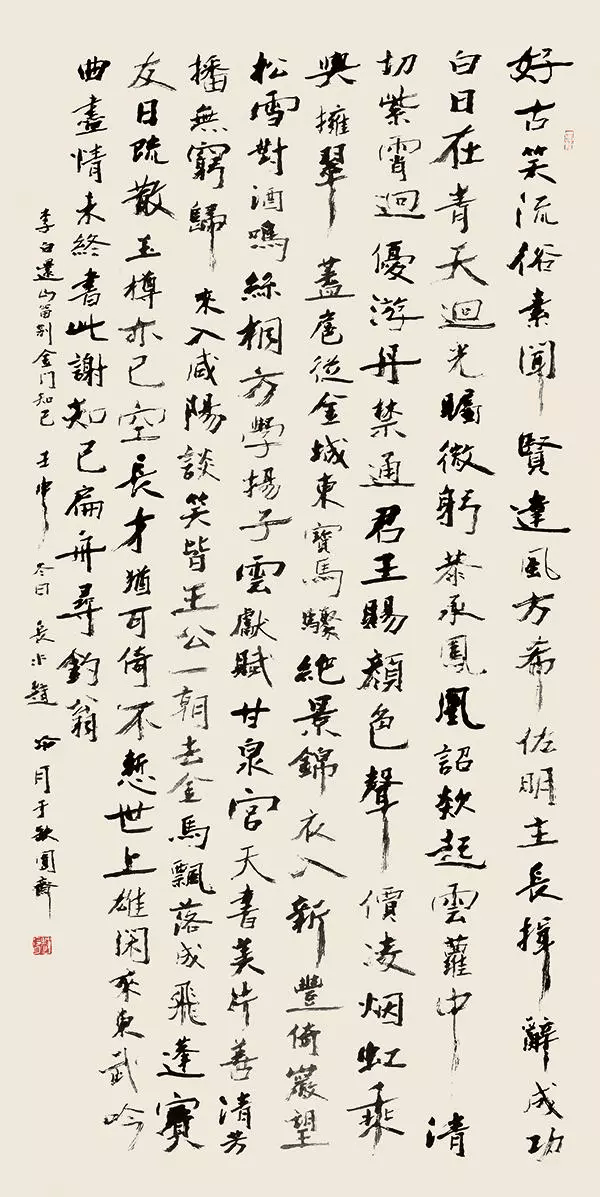 好古笑流俗素聞賢達風方希佐明主長揖辭成功
白日在青天迴光矚微躬恭承鳳凰詔欻起雲蘿中清
切紫霄迥優游丹禁通君王賜顏色聲價凌烟虹乘
輿擁翠蓋扈從金城東寶馬驟絕景錦衣入新豐倚巖望
松雪對酒鳴絲桐方學揚子雲獻賦甘泉宮天書美片善清芳
播無窮歸來入咸陽談笑皆王公一朝去金馬飄落成飛蓬賓
友日疏散玉樽亦已空長才猶可倚不慙世上雄閑來東武吟
曲盡情未終書此謝知己扁舟尋釣翁
李白還山留別金門知己 壬申冬日 長水趙冷月于缺圓齋